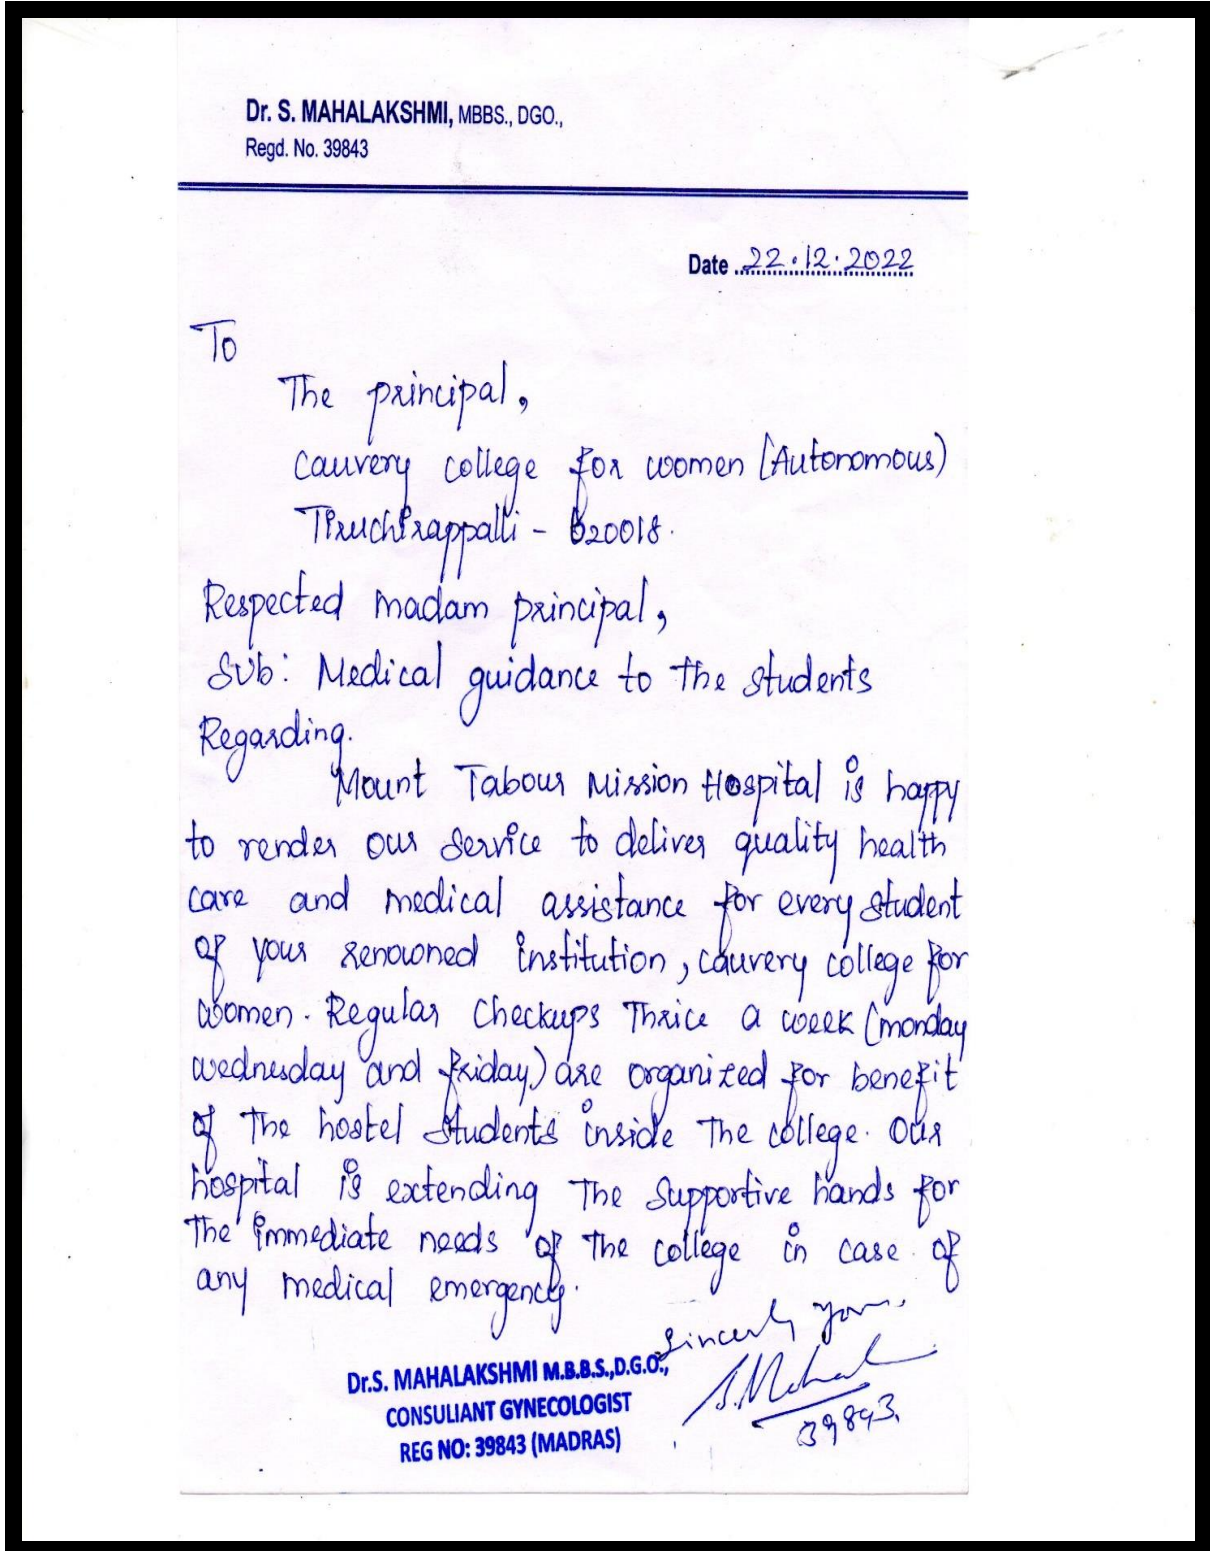 Dr. S. MAHALAKSHMI, MBBS., DGO.,
Regd. No. 39843
Date 22.12.2022
To
The principal,
Cauvery college for women (Autonomous)
Tiruchirappalli - 620018.
Respected madam principal,
Sub: Medical guidance to the students
Regarding.
Mount Tabour Mission Hospital is happy
to render our service to deliver quality health
care and medical assistance for every student
of your renowned institution, cauvery college for
women. Regular Checkups Thrice a week (monday
wednesday and friday) are organized for benefit
of the hostel students inside the college. Our
hospital is extending the supportive hands for
the immediate needs of the college in case of
any medical emergency.
Sincerely yours,
S. Mahal
39843.
Dr.S. MAHALAKSHMI M.B.B.S.,D.G.O.,
CONSULIANT GYNECOLOGIST
REG NO: 39843 (MADRAS)